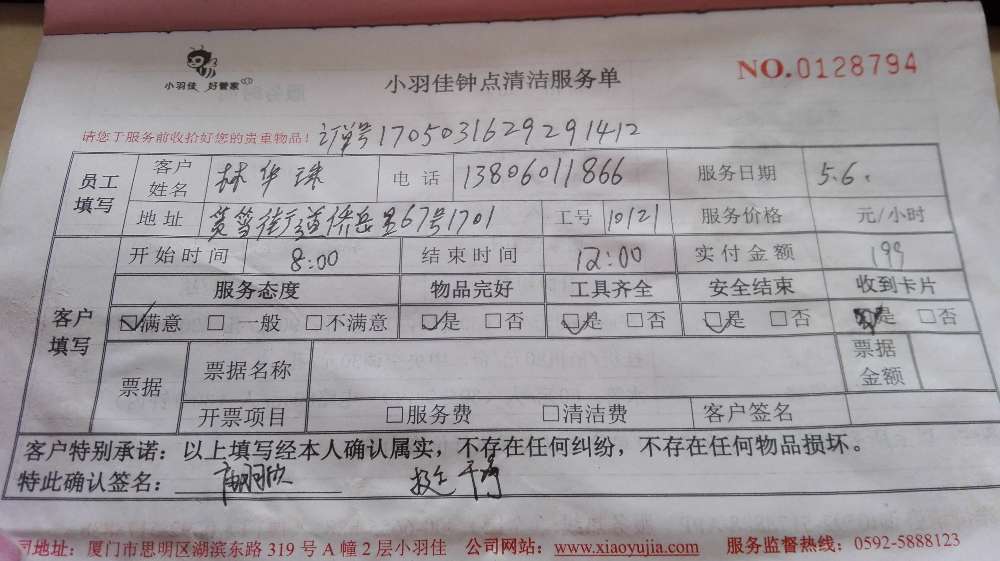 小羽佳 好管家
小羽佳钟点清洁服务单
NO.0128794
请您于服务前收拾好您的贵重物品! 订单号1705031629291412
员工填写 客户姓名 林华珠 电话 13806011866 服务日期 5.6.
地址 街道 里67号1701 工号 10121 服务价格 元/小时
客户填写 开始时间 8:00 结束时间 12:00 实付金额 199
服务态度 物品完好 工具齐全 安全结束 收到卡片
☑满意 □一般 □不满意 ☑是 □否 ☑是 □否 ☑是 □否 是 □否
票据 票据名称 票据金额
开票项目 □服务费 □清洁费 客户签名
客户特别承诺:以上填写经本人确认属实,不存在任何纠纷,不存在任何物品损坏。
特此确认签名: 挺干净
司地址:厦门市思明区湖滨东路 319 号 A 幢 2 层小羽佳 公司网站:www.xiaoyujia.com 服务监督热线:0592-5888123